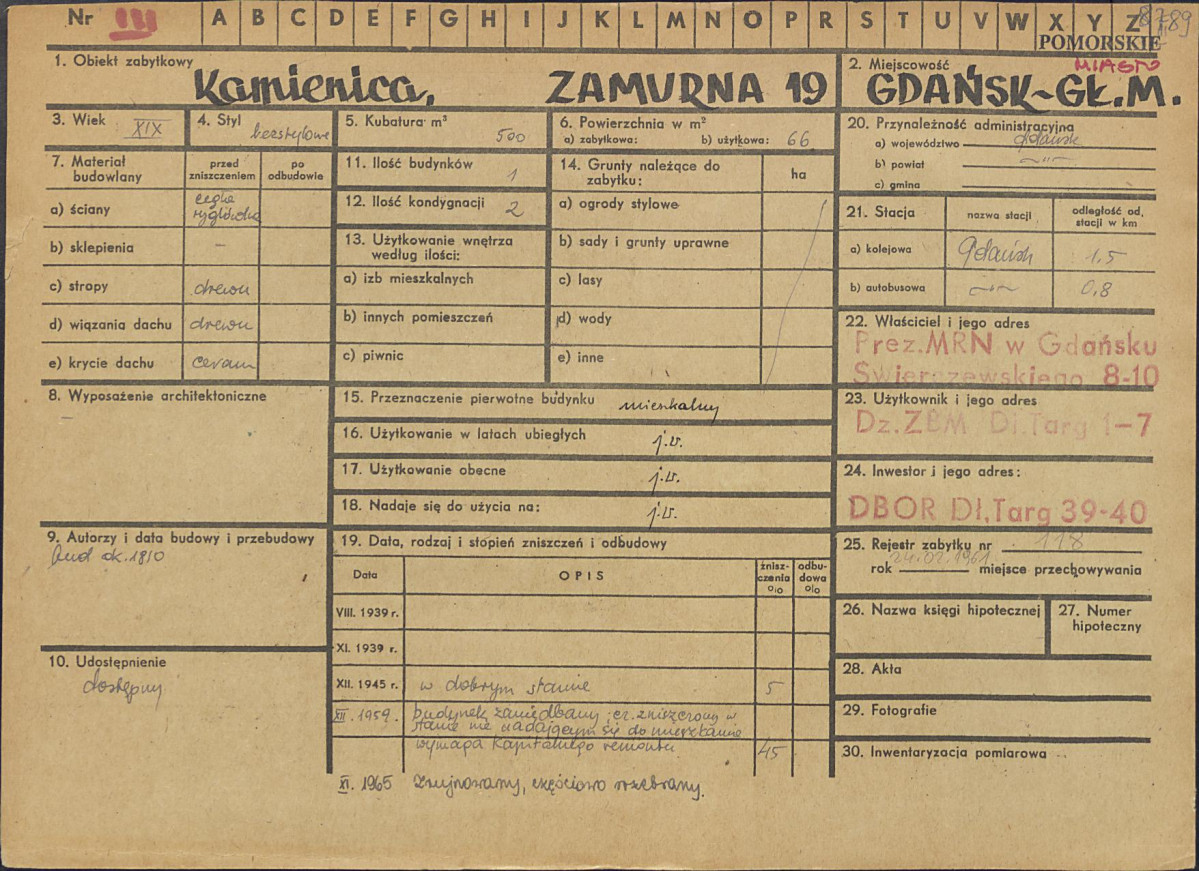 Nr III A B C D E F G H I J K L M N O P R S T U V W X Y Z
8789
POMORSKIE
1. Obiekt zabytkowy
Kamienica, ZAMURNA 19
2. Miejscowość MIASTO
GDAŃSK-GŁ.M.
3. Wiek XIX
4. Styl bezstylowe
5. Kubatura m³ 500
6. Powierzchnia w m²
a) zabytkowa: b) użytkowa: 66
7. Materiał budowlany
przed zniszczeniem
po odbudowie
a) ściany cegła ryglówka
b) sklepienia –
c) stropy drewn
d) wiązania dachu drewn
e) krycie dachu ceram
8. Wyposażenie architektoniczne
–
9. Autorzy i data budowy i przebudowy
bud ok. 1810
10. Udostępnienie
dostępny
11. Ilość budynków 1
12. Ilość kondygnacji 2
13. Użytkowanie wnętrza
według ilości:
a) izb mieszkalnych
b) innych pomieszczeń
c) piwnic
14. Grunty należące do
zabytku:
ha
a) ogrody stylowe
b) sady i grunty uprawne
c) lasy
d) wody
e) inne
15. Przeznaczenie pierwotne budynku mieszkalny
16. Użytkowanie w latach ubiegłych j.w.
17. Użytkowanie obecne j.w.
18. Nadaje się do użycia na: j.w.
19. Data, rodzaj i stopień zniszczeń i odbudowy
Data OPIS
znisz-
czenia
o/o
odbu-
dowa
o/o
VIII. 1939 r.
XI. 1939 r.
XII. 1945 r. w dobrym stanie 5
XII. 1959. budynek zaniedbany, cz. zniszczony w
stanie nie nadającym się do mieszkania
wymaga kapitalnego remontu 45
XI. 1965 Zrujnowany, częściowo rozebrany.
20. Przynależność administracyjna
a) województwo gdańsk
b) powiat –"–
c) gmina
21. Stacja
nazwa stacji
odległość od,
stacji w km
a) kolejowa Gdańsk 1,5
b) autobusowa –"– 0,8
22. Właściciel i jego adres
Prez.MRN w Gdańsku
Świerczewskiego 8-10
23. Użytkownik i jego adres
Dz.ZBM Dł.Targ 1-7
24. Inwestor i jego adres:
DBOR Dł.Targ 39-40
25. Rejestr zabytku nr 118
rok 24.02.1961 miejsce przechowywania
26. Nazwa księgi hipotecznej
27. Numer
hipoteczny
28. Akta
29. Fotografie
30. Inwentaryzacja pomiarowa